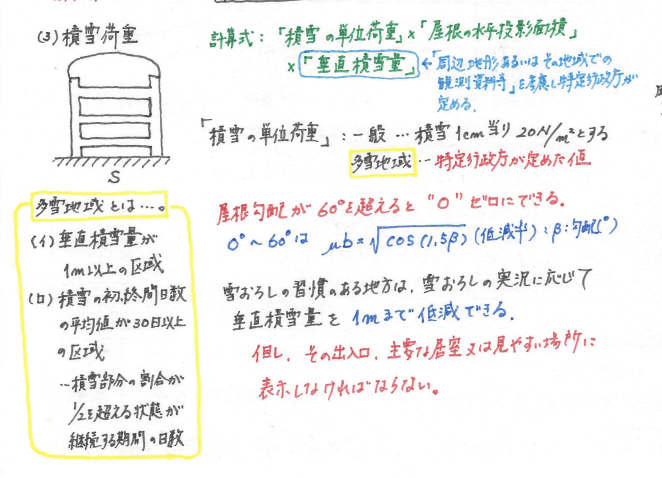 (3) 積雪荷重
計算式：「積雪の単位荷重」×「屋根の水平投影面積」
×「垂直積雪量」←「周辺地形あるいはその地域での
観測資料等」を考慮し特定行政庁が
定める.
「積雪の単位荷重」：一般 … 積雪1cm当り 20N/m²とする
多雪地域 … 特定行政庁が定めた値
S
多雪地域とは…。
(イ) 垂直積雪量が
1m以上の区域
(ロ) 積雪の初終間日数
の平均値が30日以上
の区域
…積雪部分の割合が
1/2を超える状態が
継続する期間の日数
屋根勾配が60°を超えると "0" ゼロにできる.
0°～60°は μb=√cos(1.5β) (低減率)：β：勾配(°)
雪おろしの習慣のある地方は、雪おろしの実況に応じて
垂直積雪量を 1mまで低減できる.
但し、その出入口、主要な居室又は見やすい場所に
表示しなければならない。